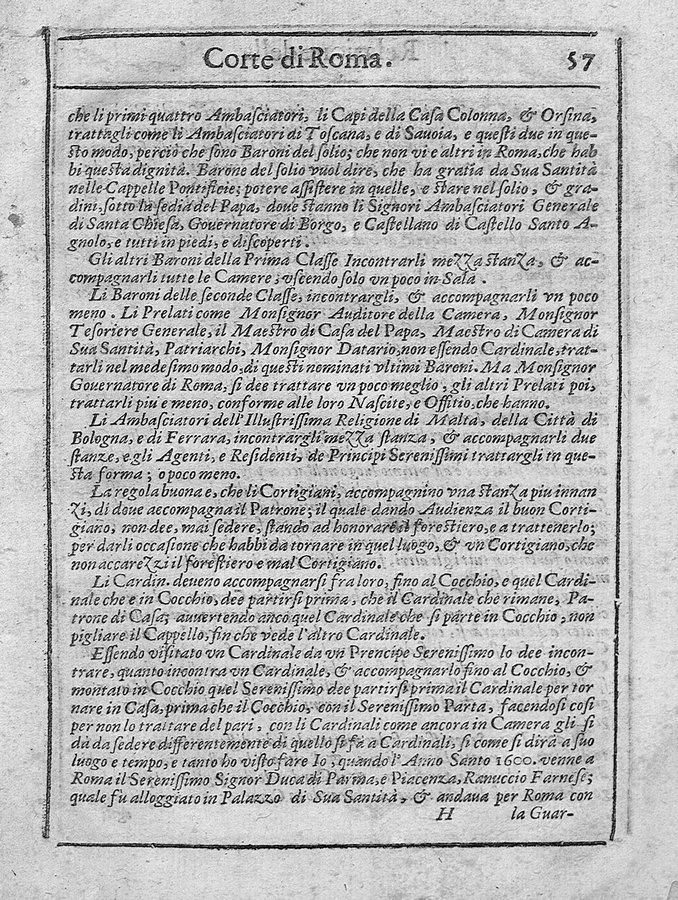 Corte di Roma. 57
che li primi quattro Ambaſciatori, li Capi della Caſa Colonna, & Orſina,
trattagli come li Ambaſciatori di Toſcana, e di Sauoia, e queſti due in que-
ſto modo, perciò che ſono Baroni del ſolio; che non vi e altri in Roma, che hab
bi queſta dignità. Barone del ſolio vuol dire, che ha gratia da Sua Santità
nelle Cappelle Pontificie; potere aſſiſtere in quelle, e ſtare nel ſolio, & gra-
dini, ſotto la ſedia del Papa, doue ſtanno li Signori Ambaſciatori Generale
di Santa Chieſa, Gouernatore di Borgo, e Caſtellano di Caſtello Santo A-
gnolo, e tutti in piedi, e diſcoperti.
Gli altri Baroni della Prima Claſſe Incontrarli mezza ſtanza, & ac-
compagnarli tutte le Camere; vſcendo ſolo vn poco in Sala.
Li Baroni delle ſeconde Claſſe, incontrargli, & accompagnarli vn poco
meno. Li Prelati come Monſignor Auditore della Camera, Monſignor
Teſoriere Generale, il Maeſtro di Caſa del Papa, Maeſtro di Camera di
Sua Santità, Patriarchi, Monſignor Datario, non eſſendo Cardinale, trat-
tarli nel medeſimo modo, di queſti nominati vltimi Baroni. Ma Monſignor
Gouernatore di Roma, ſi dee trattare vn poco meglio, gli altri Prelati poi,
trattarli piu e meno, conforme alle loro Naſcite, e Offitio, che hanno.
Li Ambaſciatori dell'Illuſtriſſima Religione di Malta, della Città di
Bologna, e di Ferrara, incontrargli mezza ſtanza, & accompagnarli due
ſtanze, e gli Agenti, e Reſidenti, de Principi Sereniſſimi trattargli in que-
ſta forma; o poco meno.
La regola buona e, che li Cortigiani, accompagnino vna ſtanza piu innan
zi, di doue accompagna il Patrone; il quale dando Audienza il buon Corti-
giano, non dee, mai ſedere, ſtando ad honorare il foreſtiero, e a trattenerlo;
per darli occaſione che habbi da tornare in quel luogo, & vn Cortigiano, che
non accarezzi il foreſtiero e mal Cortigiano.
Li Cardin. deueno accompagnarſi fra loro, fino al Cocchio, e quel Cardi-
nale che e in Cocchio, dee partirſi prima, che il Cardinale che rimane, Pa-
trone di Caſa; auuertendo anco quel Cardinale che ſi parte in Cocchio, non
pigliare il Cappello, fin che vede l'altro Cardinale.
Eſſendo viſitato vn Cardinale da vn Prencipe Sereniſſimo lo dee incon-
trare, quanto incontra vn Cardinale, & accompagnarlo fino al Cocchio, &
montato in Cocchio quel Sereniſſimo dee partirſi prima il Cardinale per tor
nare in Caſa, prima che il Cocchio, con il Sereniſſimo Parta, facendoſi coſi
per non lo trattare del pari, con li Cardinali come ancora in Camera gli ſi
dà da ſedere differentemente di quello ſi fà a Cardinali, ſi come ſi dirà a ſuo
luogo e tempo, e tanto ho viſto fare Io, quando l'Anno Santo 1600. venne a
Roma il Sereniſſimo Signor Duca di Parma, e Piacenza, Ranuccio Farneſe;
quale fu alloggiato in Palazzo di Sua Santità, & andaua per Roma con
H la Guar-